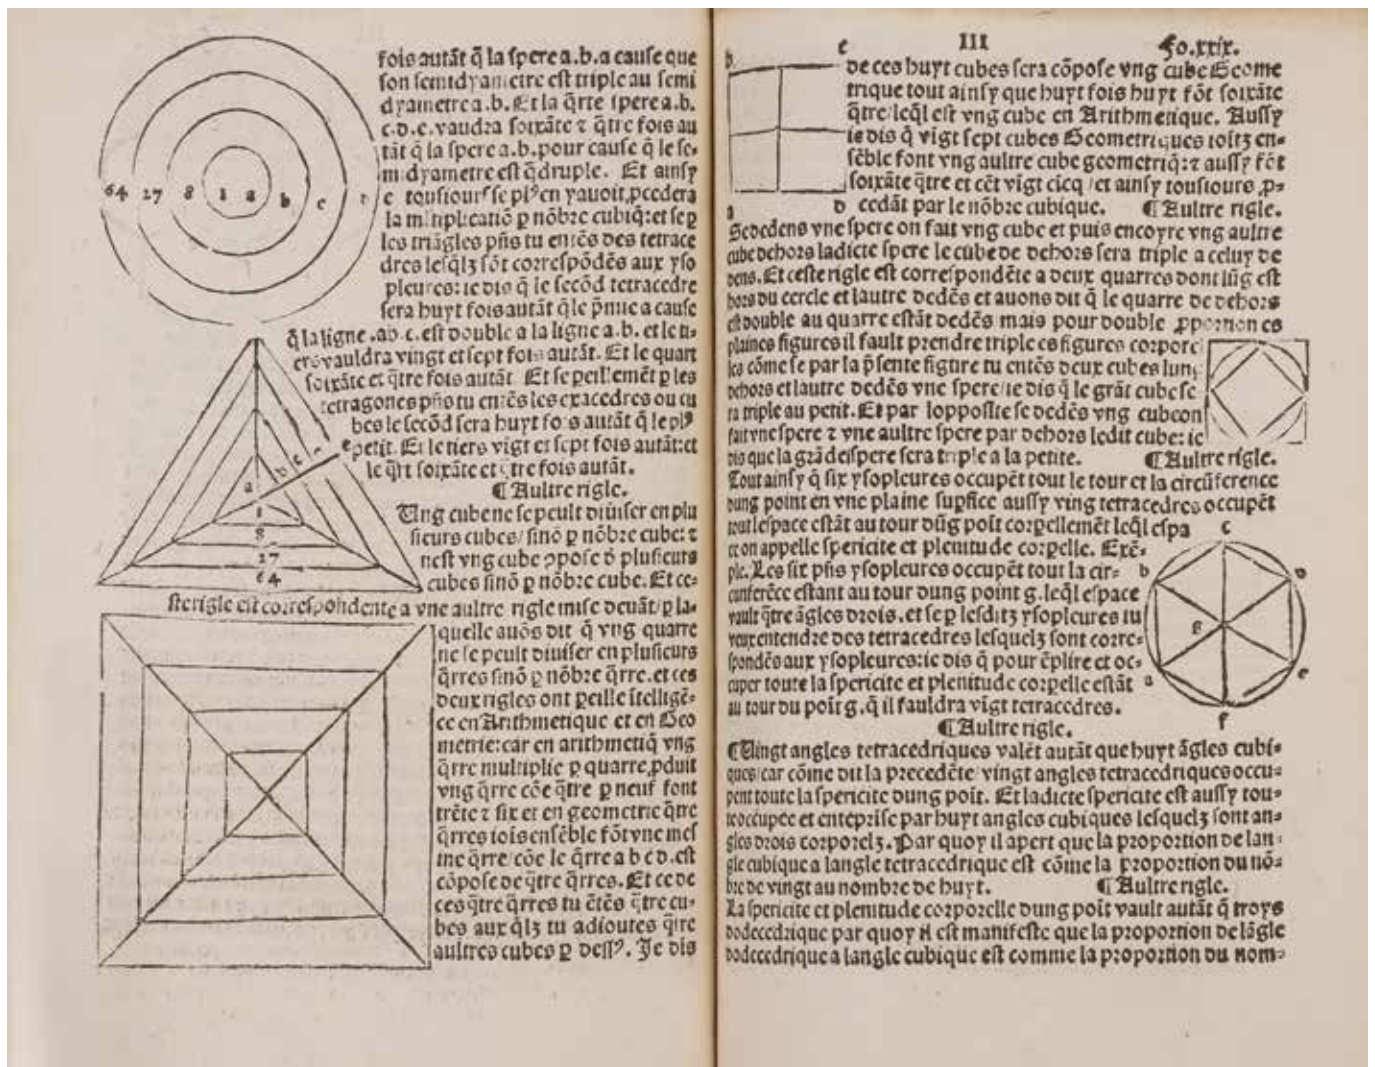 fois autāt q̄ la spere a.b.a cause que
son semidyametre est triple au semi
dyametre a.b. Et la q̄rte spere a.b.
c.d.e. vaudra soixāte ⁊ q̄tre fois au
tāt q̄ la spere a.b. pour cause q̄ le se⸗
midyametre est q̄druple. Et ainsy
64 27 8 1 a b c d e tousiours se plꝰ en y auoit, ꝓcedera
la multiplicatiō ꝑ nōbre cubiq̄: et se ꝑ
les triāgles pn̄s tu entēs des tetrace
dres lesq̄lz sōt correspōdēs aux yso
pleures: ie dis q̄ le secōd tetracedre
sera huyt fois autāt q̄ le
q̄ la ligne .ab.c. est double a la ligne a.b. et le ti⸗
ers vauldra vingt et sept fois autāt. Et le quart
soixāte et q̄tre fois autāt. Et se peillemēt ꝑ les
tetragones pn̄s tu entēs les exacedres ou cu
bes le secōd sera huyt fois autāt q̄ le plꝰ
petit. Et le tiers vigt et sept fois autāt: et
le q̄rt soixāte et q̄tre fois autāt.
a b c e
1
8
27
64
¶ Aultre rigle.
Ung cube ne se peult diuiser en plu
sieurs cubes/ sinō ꝑ nōbre cube: ⁊
nest vng cube ꝯpose d̄ plusieurs
cubes sinō ꝑ nōbre cube. Et ce⸗
ste rigle est correspondente a vne aultre rigle mise deuāt/ ꝑ la⸗
quelle auōs dit q̄ vng quarre
ne se peult diuiser en plusieurs
q̄rres sinō ꝑ nōbre q̄rre. et ces
deux rigles ont peille itelligē⸗
ce en Arithmetique et en Geo
metrie: car en arithmetiq̄ vng
q̄rre multiplie ꝑ quarre, ꝓduit
vng q̄rre cōe q̄tre ꝑ neuf font
trēte ⁊ six et en geometrie q̄tre
q̄rres ioīs ensēble fōt vne mes
me q̄rre/ cōe le q̄rre a b c d. est
cōpose de q̄tre q̄rres. Et ce de
ces q̄tre q̄rres tu ētēs q̄tre cu⸗
bes aux q̄lz tu adioutes q̄tre
aultres cubes ꝑ dessꝰ. Je dis
III Fo.xxix.
b e
a d
de ces huyt cubes sera cōpose vng cube Geome
trique tout ainsy que huyt fois huyt fōt soixāte
q̄tre/ leq̄l est vng cube en Arithmetique. Aussy
ie dis q̄ vigt sept cubes Geometriques ioītz en⸗
sēble font vng aultre cube geometriq̄: ⁊ aussy fōt
soixāte q̄tre et cēt vigt cicq/ et ainsy tousiours ꝓ⸗
cedāt par le nōbre cubique. ¶ Aultre rigle.
Se dedens vne spere on fait vng cube et puis encoyre vng aultre
cube dehors ladicte spere le cube de dehors sera triple a celuy de
dens. Et ceste rigle est correspondēte a deux quarres dont lūg est
hors du cercle et lautre dedēs et auons dit q̄ le quarre de dehors
est double au quarre estāt dedēs mais pour double ꝓportion es
plaines figures il fault prendre triple es figures corpore
les cōme se par la p̄sente figure tu entēs deux cubes lun
dehors et lautre dedēs vne spere/ ie dis q̄ le grāt cube se
ra triple au petit. Et par lopposite se dedēs vng cube on
fait vne spere ⁊ vne aultre spere par dehors ledit cube: ie
dis que la grāde spere sera triple a la petite. ¶ Aultre rigle.
Tout ainsy q̄ six ysopleures occupēt tout le tour et la circūference
dung point en vne plaine supfice aussy ving tetracedres occupēt
tout lespace estāt au tour dūg poīt corpellemēt leq̄l espa
ce on appelle spericite et plenitude corpelle. Exē⸗
ple. Les six pn̄s ysopleures occupēt tout la cir⸗
cunferēce estant au tour dung point g. leq̄l espace
vault q̄tre āgles drois. et se ꝑ lesditz ysopleures tu
veux entendre des tetracedres lesquelz sont corre⸗
spondēs aux ysopleures: ie dis q̄ pour ēplire et oc⸗
cuper toute la spericite et plenitude corpelle estāt
au tour du poīt g. q̄ il fauldra vigt tetracedres.
c
b d
g
a e
f
¶ Aultre rigle.
¶ Uingt angles tetracedriques valēt autāt que huyt āgles cubi⸗
ques/ car cōme dit la precedēte/ vingt angles tetracedriques occu⸗
pent toute la spericite dung poīt. Et ladicte spericite est aussy tou⸗
te occupee et enteprise par huyt angles cubiques lesquelz sont an⸗
gles drois corporelz. Par quoy il apert que la proportion de lan⸗
gle cubique a langle tetracedrique est cōme la proportion du nō⸗
bre de vingt au nombre de huyt. ¶ Aultre rigle.
La spericite et plenitude corporelle dung poīt vault autāt q̄ troys
dodecedrique par quoy il est manifeste que la proportion de lāgle
dodecedrique a langle cubique est comme la proportion du nom⸗